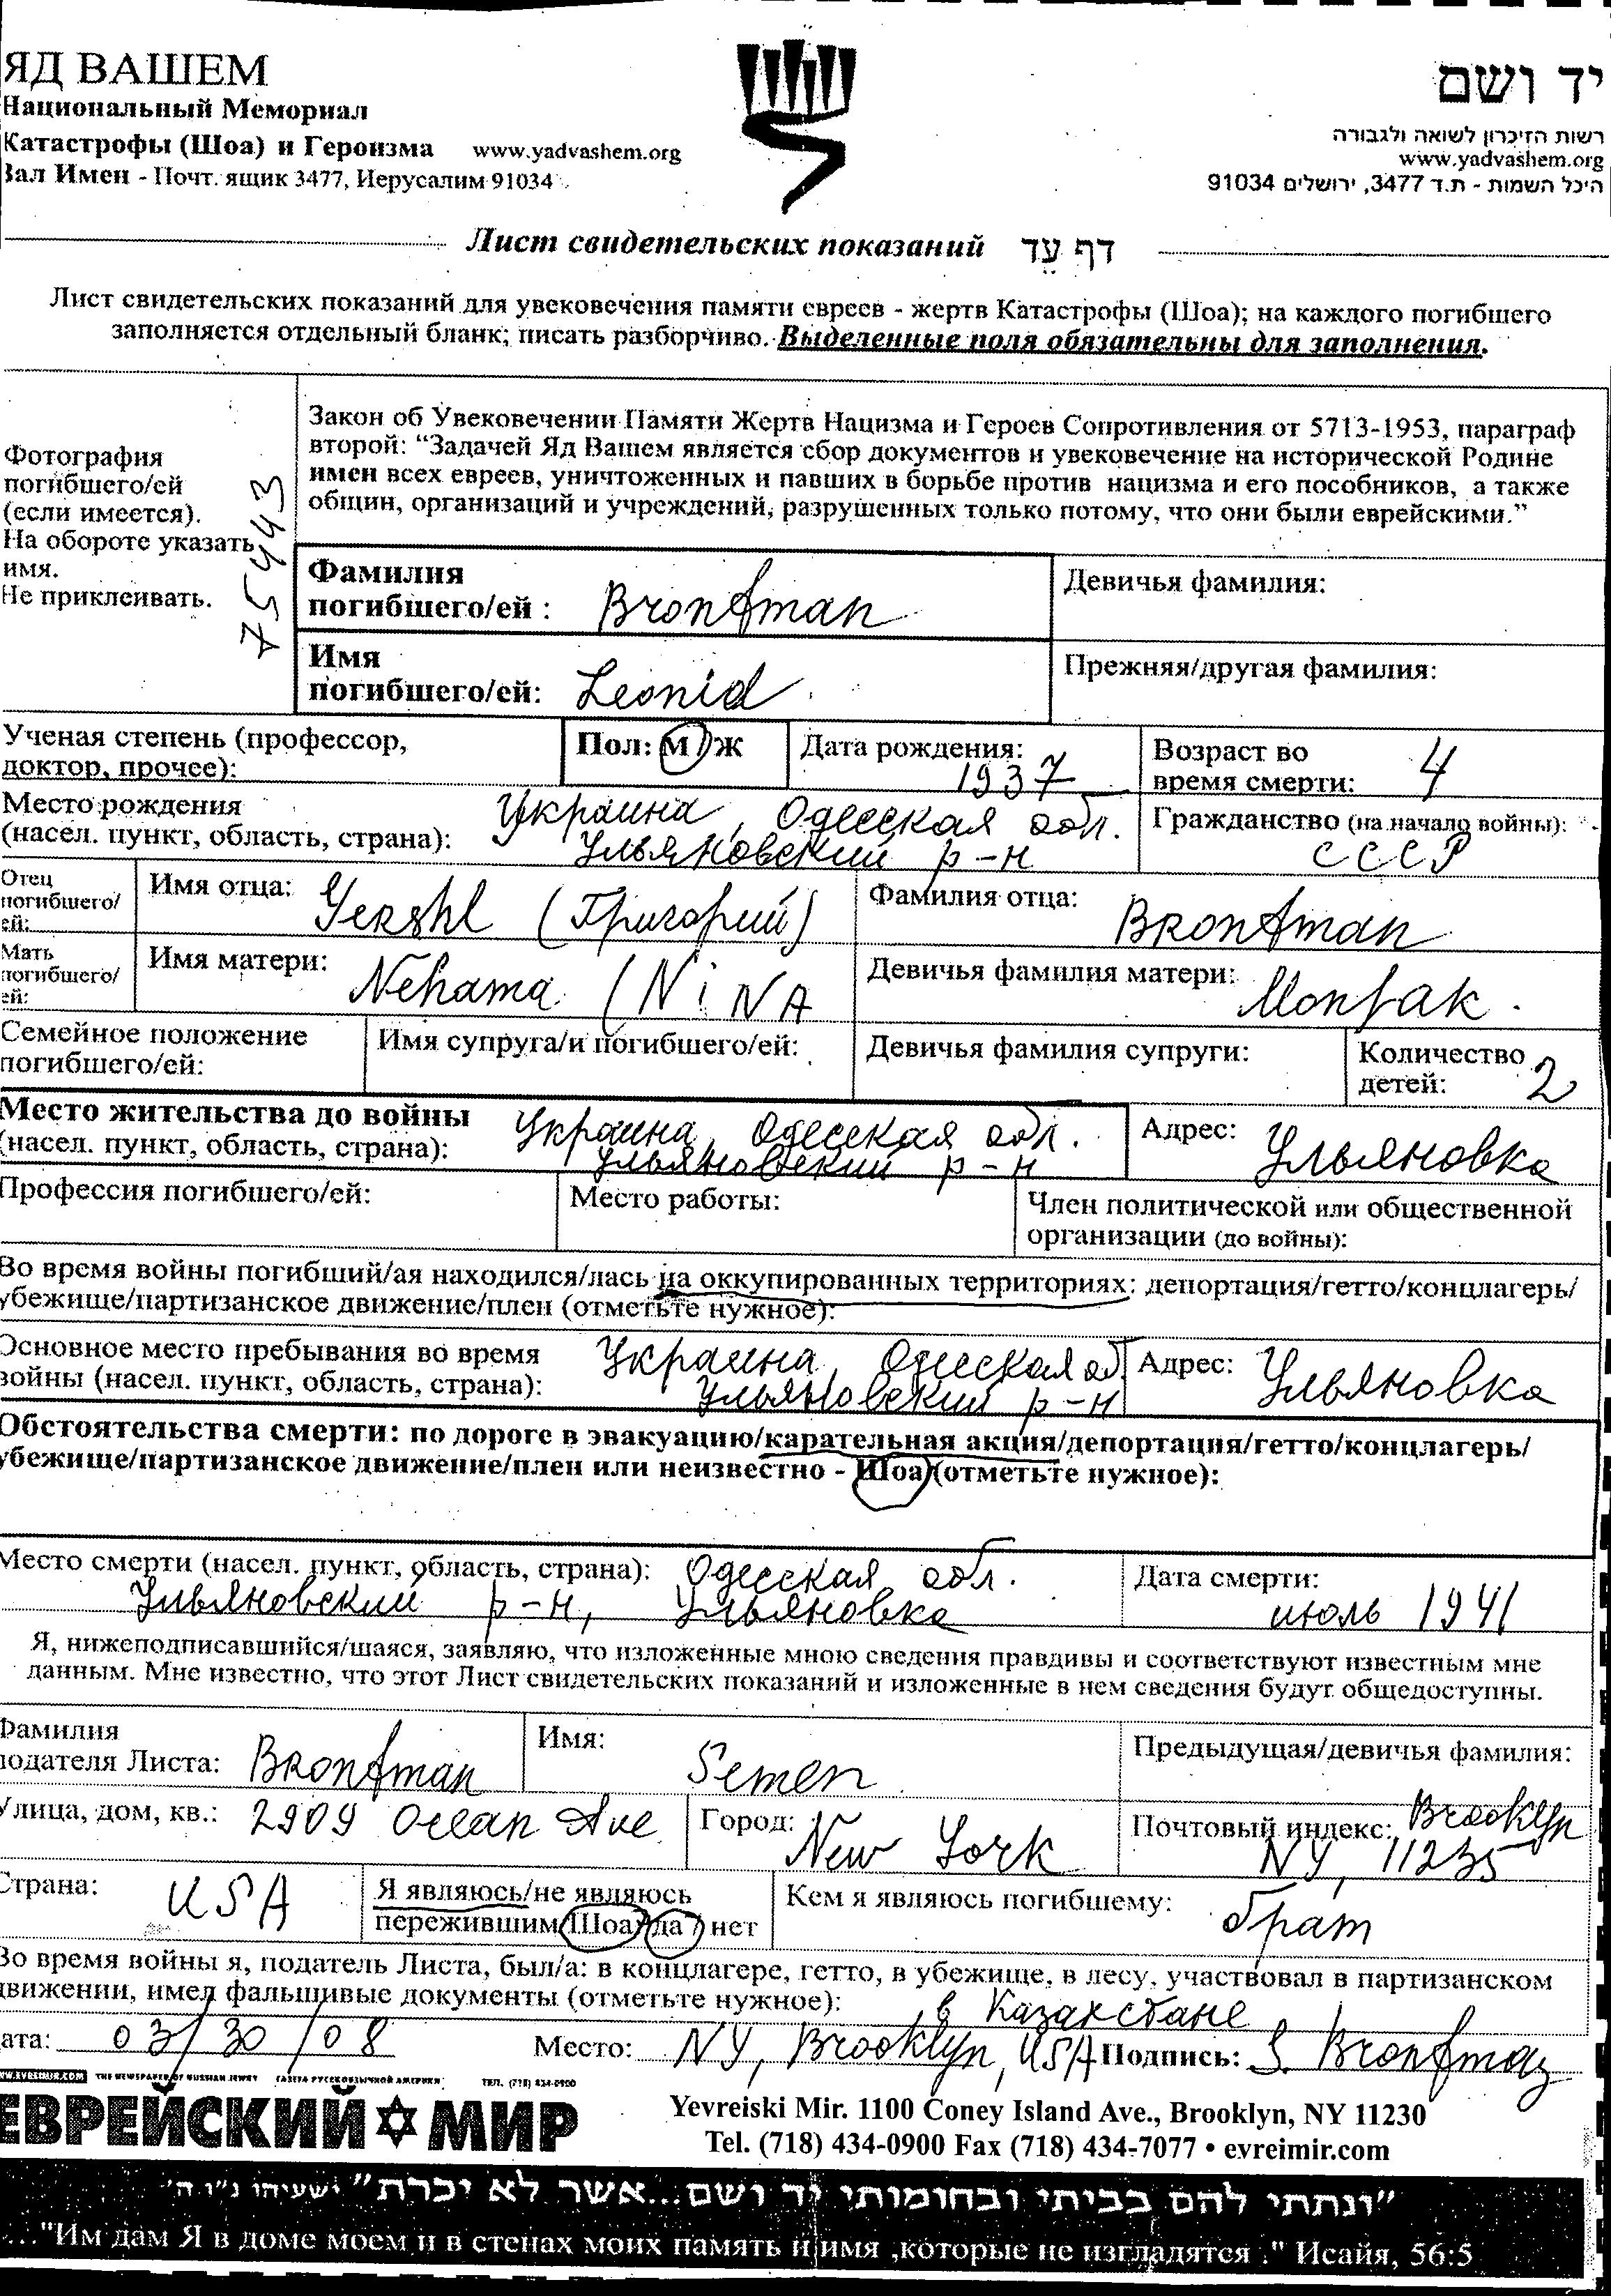 ЯД ВАШЕМ
Национальный Мемориал
Катастрофы (Шоа) и Героизма www.yadvashem.org
Зал Имен - Почт. ящик 3477, Иерусалим 91034
יד ושם
רשות הזיכרון לשואה ולגבורה
www.yadvashem.org
היכל השמות - ת.ד 3477, ירושלים 91034
Лист свидетельских показаний דף עד
Лист свидетельских показаний для увековечения памяти евреев - жертв Катастрофы (Шоа); на каждого погибшего
заполняется отдельный бланк; писать разборчиво. Выделенные поля обязательны для заполнения.
Фотография
погибшего/ей
(если имеется).
На обороте указать
имя.
Не приклеивать.
75443
Закон об Увековечении Памяти Жертв Нацизма и Героев Сопротивления от 5713-1953, параграф
второй: “Задачей Яд Вашем является сбор документов и увековечение на исторической Родине
имен всех евреев, уничтоженных и павших в борьбе против нацизма и его пособников, а также
общин, организаций и учреждений, разрушенных только потому, что они были еврейскими.”
Фамилия
погибшего/ей : Bronfman
Девичья фамилия:
Имя
погибшего/ей: Leonid
Прежняя/другая фамилия:
Ученая степень (профессор,
доктор, прочее):
Пол: М / Ж
Дата рождения:
1937
Возраст во
время смерти: 4
Место рождения
(насел. пункт, область, страна): Украина, Одесская обл.
Ульяновский р-н
Гражданство (на начало войны):
СССР
Отец
погибшего/
ей:
Имя отца: Gershl (Григорий)
Фамилия отца: Bronfman
Мать
погибшего/
ей:
Имя матери: Nehama (NiNA
Девичья фамилия матери: Monfak.
Семейное положение
погибшего/ей:
Имя супруга/и погибшего/ей:
Девичья фамилия супруги:
Количество
детей: 2
Место жительства до войны
(насел. пункт, область, страна): Украина, Одесская обл.
Ульяновский р-н
Адрес: Ульяновка
Профессия погибшего/ей:
Место работы:
Член политической или общественной
организации (до войны):
Во время войны погибший/ая находился/лась на оккупированных территориях: депортация/гетто/концлагерь/
убежище/партизанское движение/плен (отметьте нужное):
Основное место пребывания во время
войны (насел. пункт, область, страна): Украина, Одесская об.
Ульяновский р-н
Адрес: Ульяновка
Обстоятельства смерти: по дороге в эвакуацию/карательная акция/депортация/гетто/концлагерь/
убежище/партизанское движение/плен или неизвестно - Шоа (отметьте нужное):
Место смерти (насел. пункт, область, страна): Одесская обл.
Ульяновский р-н, Ульяновка
Дата смерти:
июль 1941
Я, нижеподписавшийся/шаяся, заявляю, что изложенные мною сведения правдивы и соответствуют известным мне
данным. Мне известно, что этот Лист свидетельских показаний и изложенные в нем сведения будут общедоступны.
Фамилия
подателя Листа: Bronfman
Имя: Semen
Предыдущая/девичья фамилия:
Улица, дом, кв.: 2909 Ocean Ave
Город: New York
Почтовый индекс: Brooklyn
NY, 11235
Страна: USA
Я являюсь/не являюсь
пережившим Шоа/ да / нет
Кем я являюсь погибшему: брат
Во время войны я, податель Листа, был/а: в концлагере, гетто, в убежище, в лесу, участвовал в партизанском
движении, имел фальшивые документы (отметьте нужное): в Казахстане
Дата: 03/30/08 Место: NY, Brooklyn, USA Подпись: S. Bronfman
WWW.EVREIMIR.COM THE NEWSPAPER OF RUSSIAN JEWRY ГАЗЕТА РУССКОЯЗЫЧНОЙ АМЕРИКИ ТЕЛ. (718) 434-0900
ЕВРЕЙСКИЙ МИР
Yevreiski Mir. 1100 Coney Island Ave., Brooklyn, NY 11230
Tel. (718) 434-0900 Fax (718) 434-7077 • evreimir.com
"ונתתי להם בביתי ובחומותי יד ושם...אשר לא יכרת" ישעיהו נ"ו ה'
..."Им дам Я в доме моем и в стенах моих память и имя ,которые не изгладятся ." Исайя, 56:5